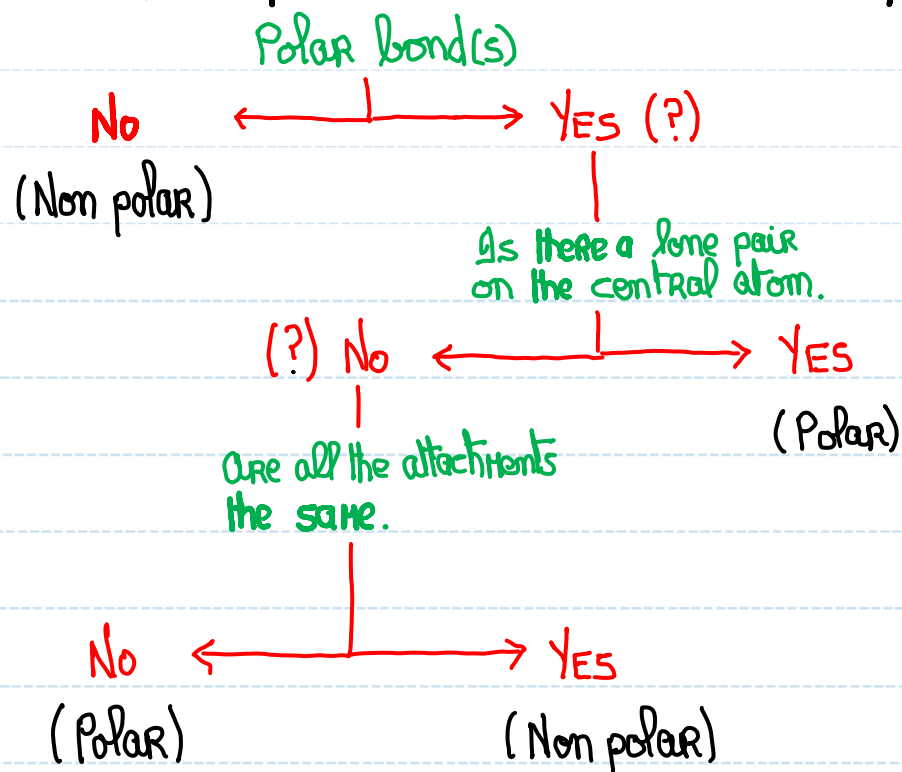 Polar bond(s)
No
YES (?)
(Non polar)
Is there a lone pair
on the central atom.
(?) No
YES
(Polar)
are all the attachments
the same.
No
YES
(Polar)
(Non polar)